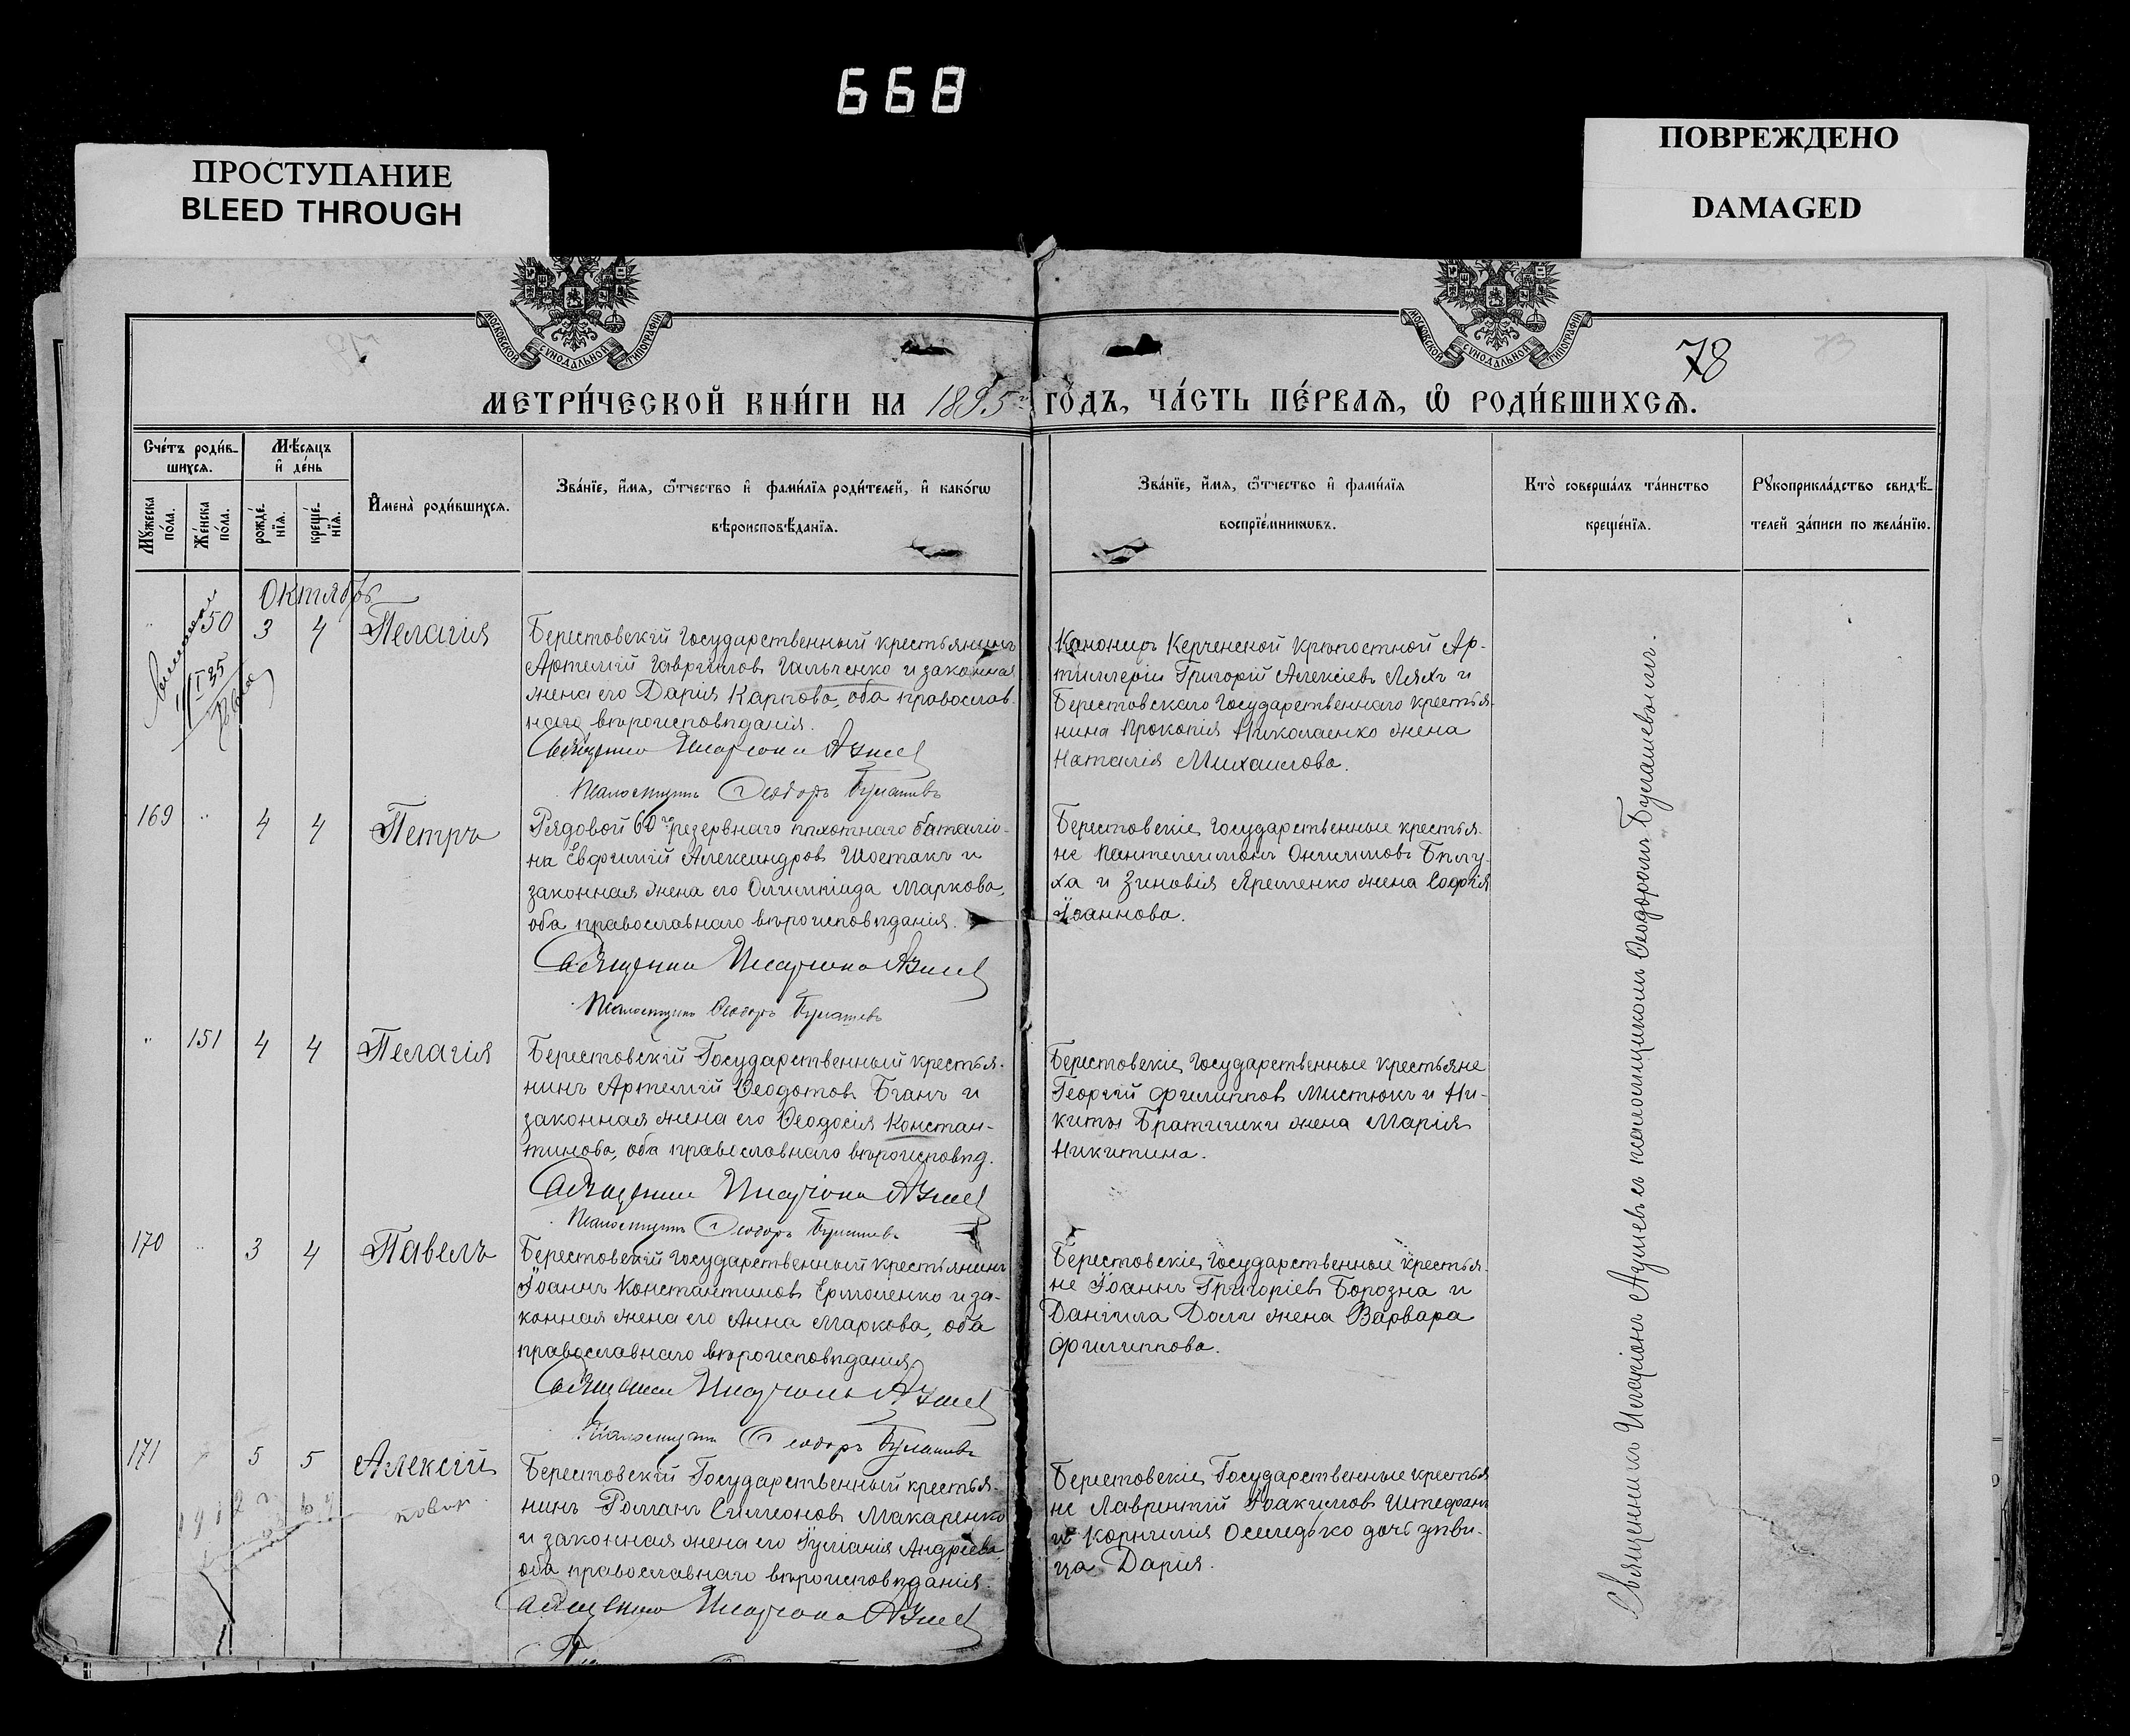 668
ПРОСТУПАНИЕ
BLEED THROUGH
ПОВРЕЖДЕНО
DAMAGED
МОСКОВСКОЙ СУНОДАЛЬНОЙ ТИПОГРАФІИ
МОСКОВСКОЙ СУНОДАЛЬНОЙ ТИПОГРАФІИ
78
МЕТРИ́ЧЕСКОЙ КНИ́ГИ НА 1895 г. ГО́ДЪ, ЧА́СТЬ ПЕ́РВАѦ, Ѽ РОДИ́ВШИХСѦ.
Сче́тъ роди́в-
шихсѧ.
Мѣ́сѧцъ
и҆ де́нь
Мꙋ́жеска
по́ла.
Же́нска
по́ла.
рожде́-
нїѧ.
креще́-
нїѧ.
И҆мена̀ роди́вшихсѧ.
Зва́нїе, и҆́мѧ, ѻ҆́тчество и҆ фами́лїѧ роди́телей, и҆ како́гѡ
вѣроисповѣ́данїѧ.
Зва́нїе, и҆́мѧ, ѻ҆́тчество и҆ фами́лїѧ
воспрїе́мникѡвъ.
Кто̀ соверша́лъ та́инство
креще́нїѧ.
Рꙋкоприкла́дство свидѣ́-
телей за́писи по жела́нїю.
Октябрь
150 3 4 Пелагія
Берестовскій Государственный крестьянинъ
Артемій Гавриловъ Гальченко и законная
жена его Дарія Карпова, оба православ-
наго вѣроисповѣданія.
Священникъ Иларіонъ
Псаломщикъ Ѳеодоръ
Канониръ Керченской Крѣпостной Ар-
тиллеріи Григорій Алексіевъ Ляхъ и
Берестовскаго Государственнаго крестья-
нина Прокопія Николаенко жена
Наталія Михаилова.
169 " 4 4 Петръ
Рядовой 60го резервнаго пѣхотнаго баталіо-
на Евфимій Александровъ Шостакъ и
законная жена его Олимпіада Маркова,
оба православнаго вѣроисповѣданія.
Священникъ Иларіонъ
Псаломщикъ Ѳеодоръ
Берестовскіе Государственные крестья-
не Пантелеимонъ Онисимовъ Бѣлу-
ха и Зиновія Яременко жена Софія
Іоаннова.
" 151 4 4 Пелагія
Берестовскій Государственный крестья-
нинъ Артемій Ѳеодотовъ Бганъ и
законная жена его Ѳеодосія Констан-
тинова, оба православнаго вѣроисповѣд.
Священникъ Иларіонъ
Псаломщикъ Ѳеодоръ
Берестовскіе Государственные крестьяне
Георгій Филипповъ Мистюкъ и Ни-
киты Братишки жена Марія
Никитина.
170 " 3 4 Павелъ
Берестовскій Государственный крестьянинъ
Іоаннъ Константиновъ Ермоленко и за-
конная жена его Анна Маркова, оба
православнаго вѣроисповѣданія.
Священникъ Иларіонъ
Псаломщикъ Ѳеодоръ
Берестовскіе Государственные крестья-
не Іоаннъ Григоріевъ Борозна и
Даніила Доли жена Варвара
Филиппова.
171 5 5 Алексій
Берестовскій Государственный крестья-
нинъ Романъ Симеоновъ Макаренко
и законная жена его Іуліанія Андреева
оба православнаго вѣроисповѣданія.
Священникъ Иларіонъ
Берестовскіе Государственные крестья
не Лаврентій Іоакимовъ Штефанъ
и Корнилія Оселедько дочь дѣви-
ца Дарія.
Священникъ Иларіонъ съ псаломщикомъ Ѳеодоромъ